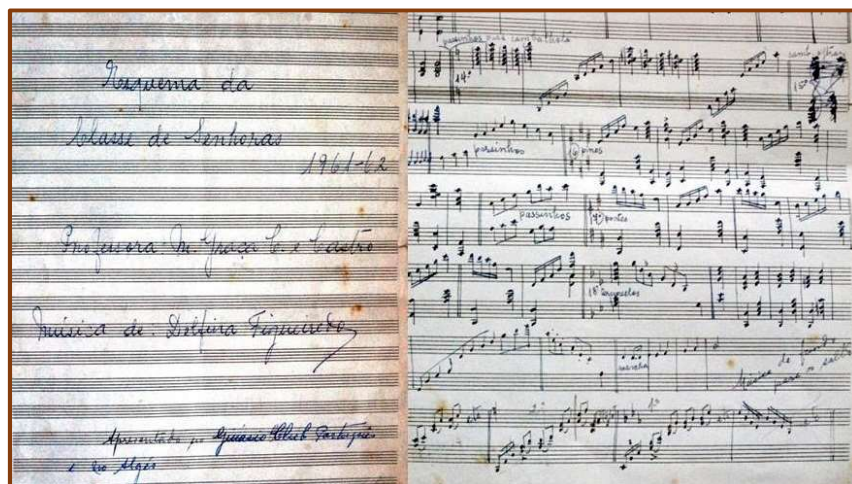 Esquema da
Classe de Senhoras
1961-62
Professora: M. Graça C. e Castro
Música de: Delfina Figueiredo
Apresentado no Ginásio Club Português
e no Algés
passinhos para cambalhota
14º
15º
passinhos
16º pinos
passinhos
17º pontes
18º
marcha
Música de fundo
para o salto